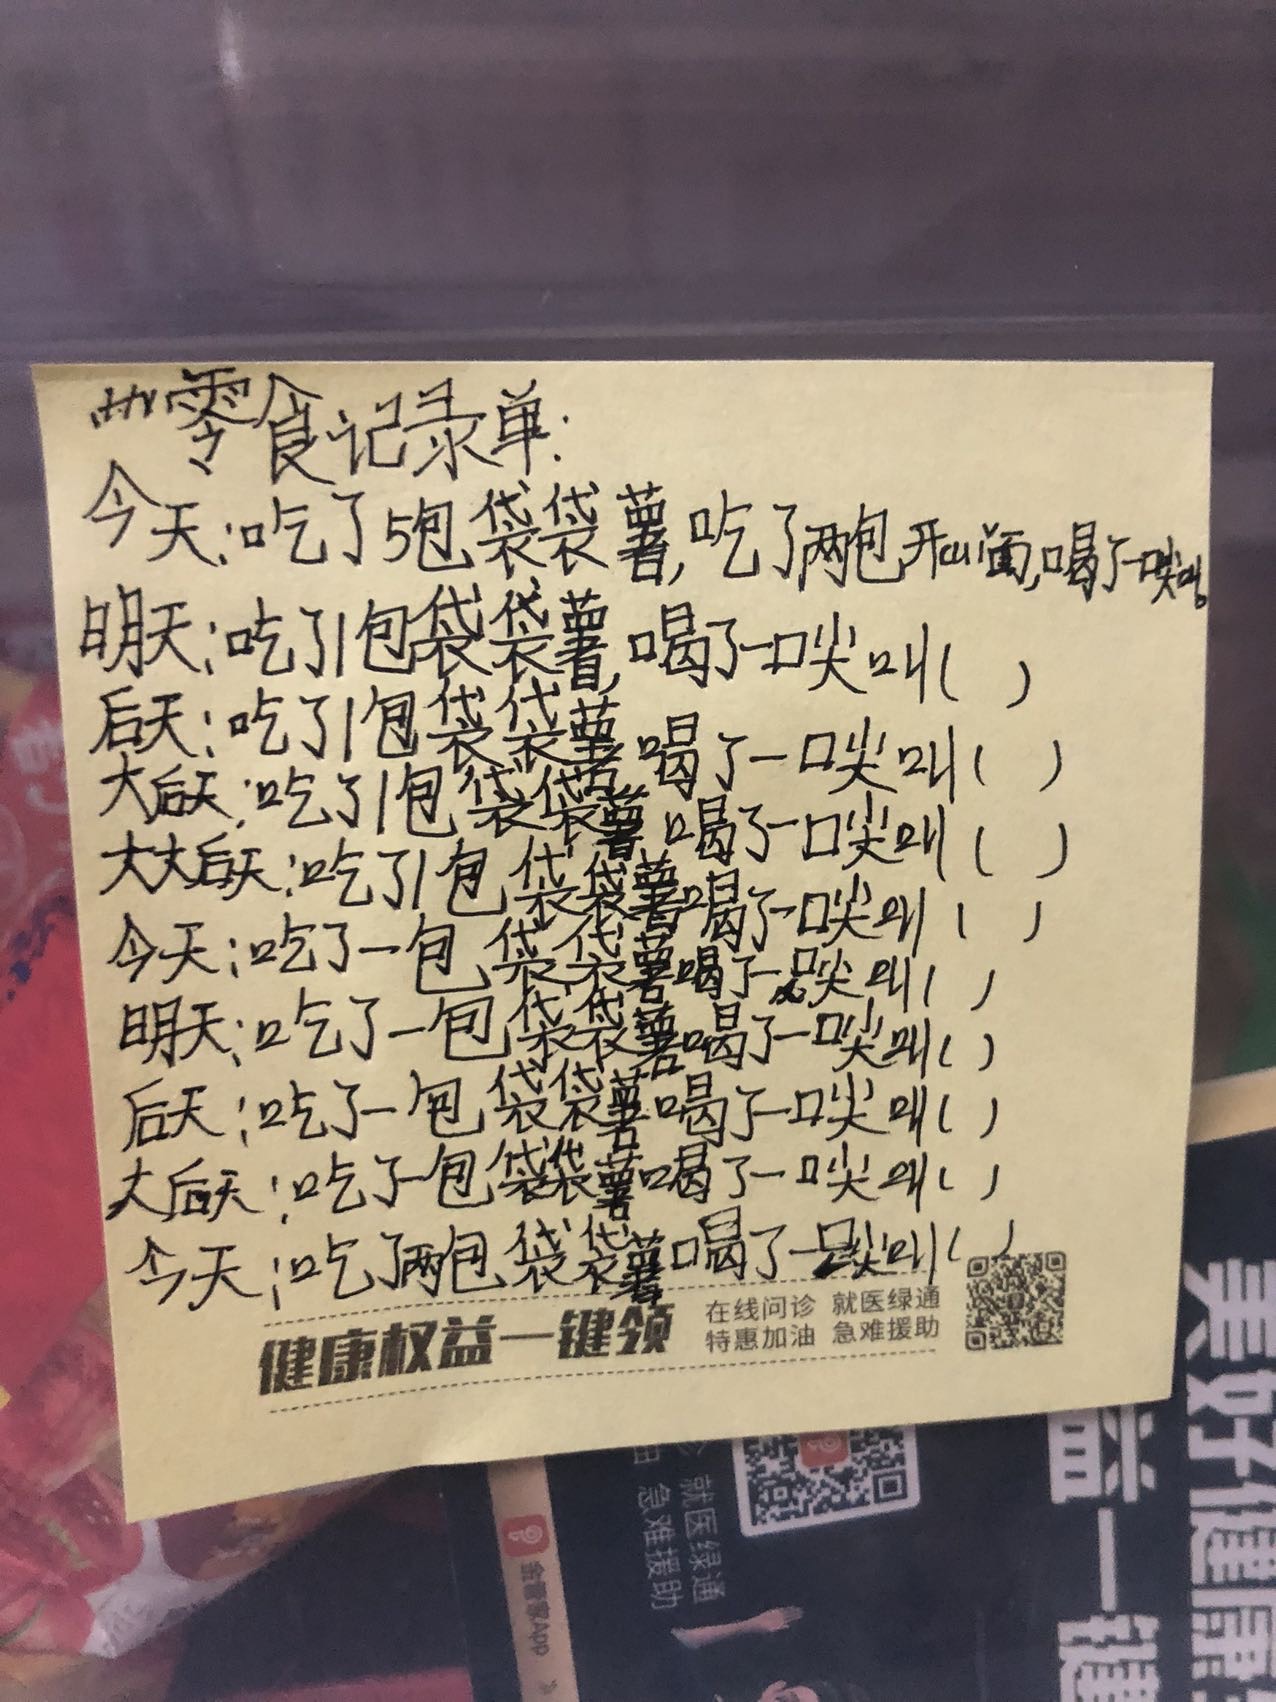 零食记录单:
今天:吃了5包袋袋薯,吃了两包开山面,喝了一口尖叫。
明天:吃了1包袋袋薯,喝了一口尖叫( )
后天:吃了1包袋袋薯喝了一口尖叫( )
大后天:吃了1包袋袋薯喝了一口尖叫( )
大大后天:吃了1包袋袋薯喝了一口尖叫( )
今天:吃了一包袋袋薯喝了一口尖叫( )
明天:吃了一包袋袋薯喝了一口尖叫( )
后天:吃了一包袋袋薯喝了一口尖叫( )
大后天:吃了一包袋袋薯喝了一口尖叫( )
今天:吃了两包袋袋薯喝了一口尖叫( )
健康权益一键领
在线问诊 就医绿通
特惠加油 急难援助
美好健康
益一键
就医绿通
急难援助
金管家App